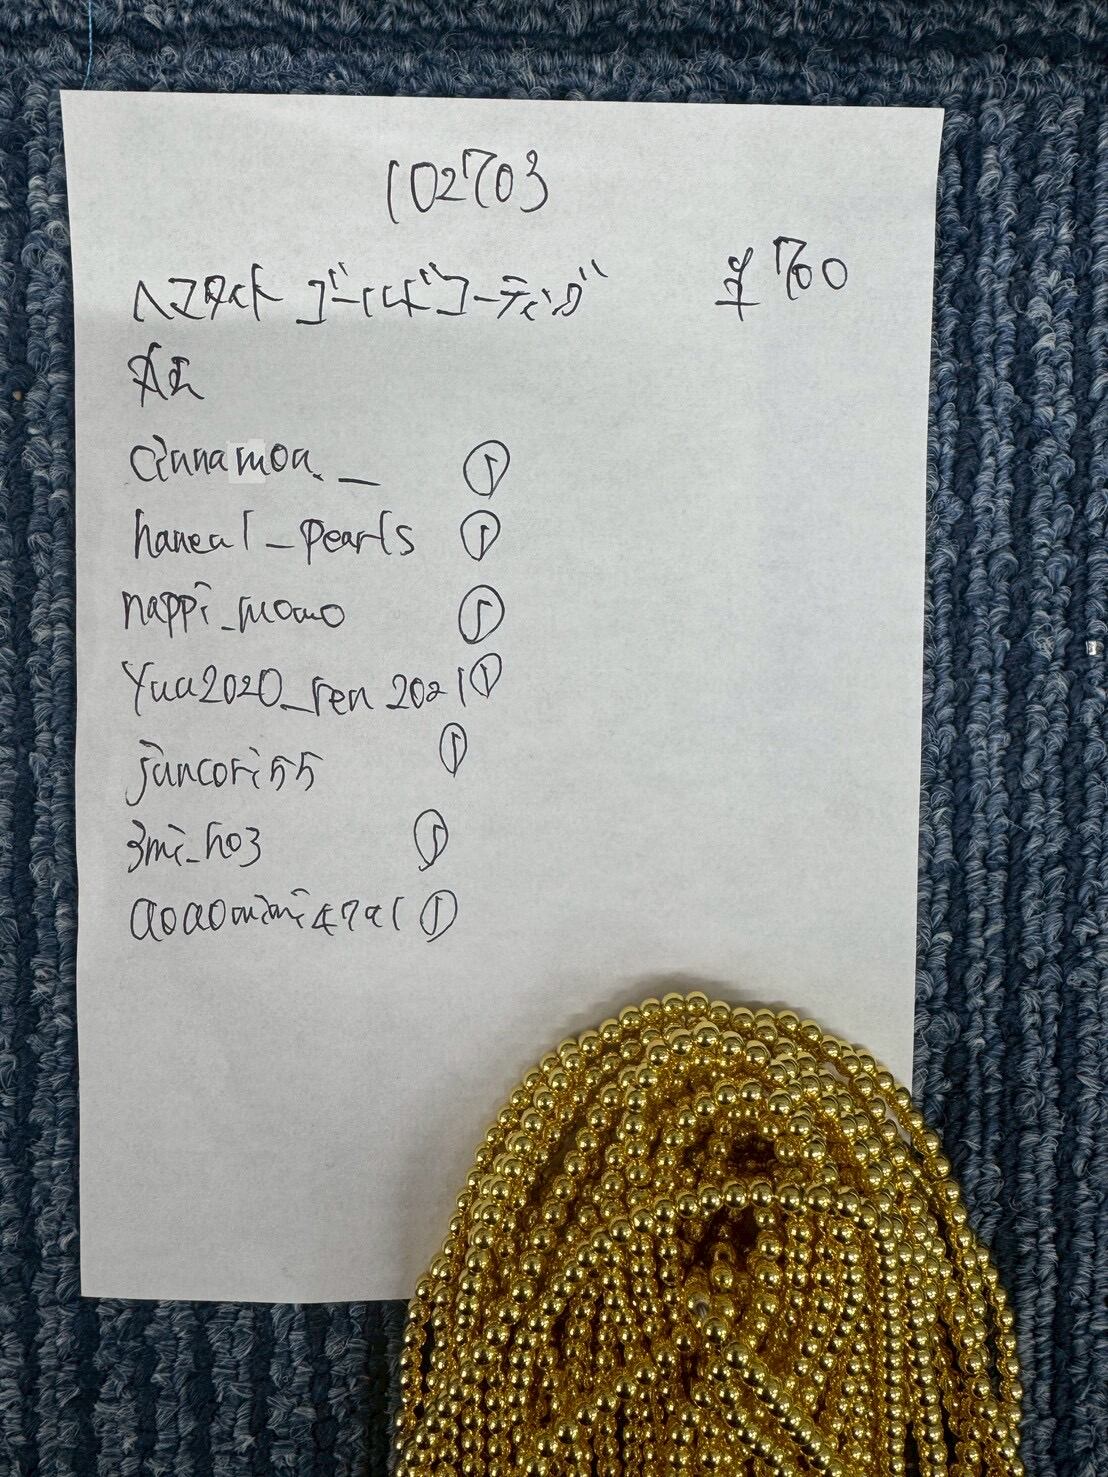 102703
ヘマタイト ゴールドコーティング ¥700
cinnamon._ ①
haneul_pearls ①
nappi_momo ①
Yua2020_ren2021 ①
juncori55 ①
3mi_ho3 ①
aoaomimi4791 ①